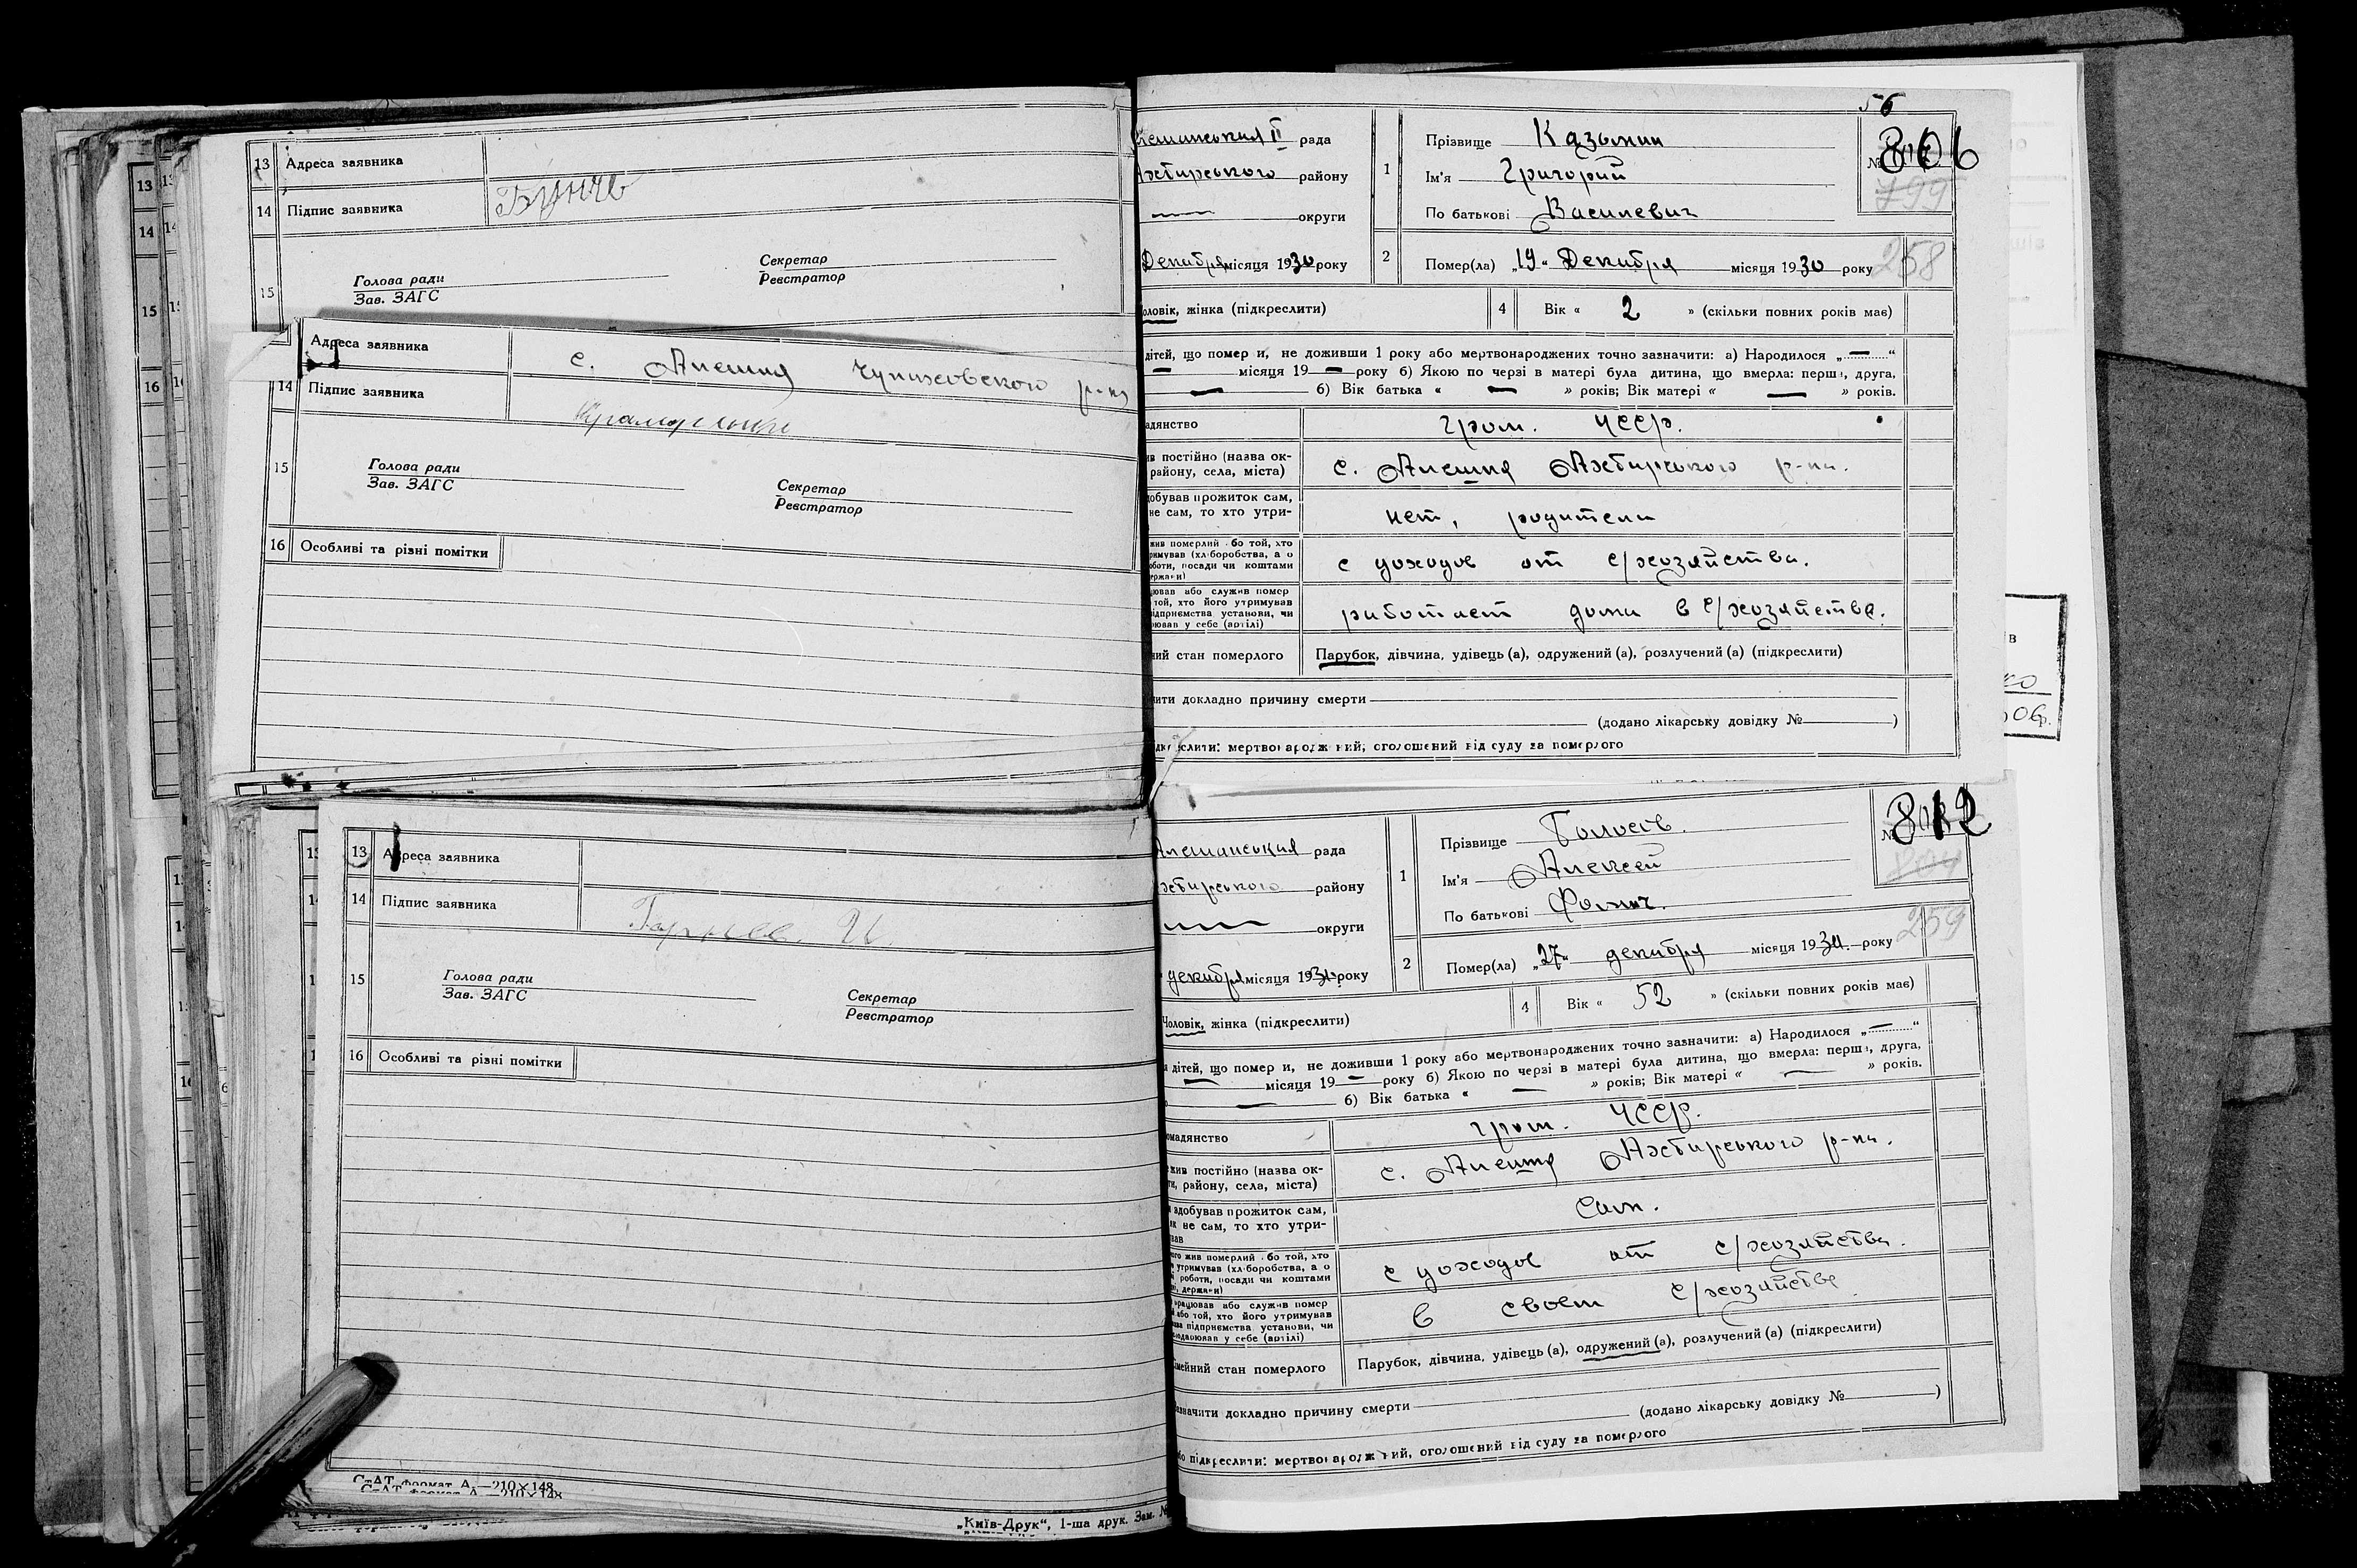 13 Адреса заявника
14 Підпис заявника
15
Голова ради
Зав. ЗАГС
Секретар
Реєстратор
Адреса заявника с. Алешня Чупиховского р-на
14 Підпис заявника
15
Голова ради
Зав. ЗАГС
Секретар
Реєстратор
16 Особливі та різні помітки
13 Адреса заявника
14 Підпис заявника
15
Голова ради
Зав. ЗАГС
Секретар
Реєстратор
16 Особливі та різні помітки
СтАТ формат А —210×148
„Київ-Друк“, 1-ша друк. Зам. №
56
рада
району
округи
Декабря місяця 1930 року
1
Прізвище Казьмин
Ім'я Григорий
По батькові Василевич
№ 806
799
2
Помер(ла) „19“ Декабря місяця 1930 року
258
оловік, жінка (підкреслити)
4 Вік « 2 » (скільки повних років має)
дітей, що помер и, не доживши 1 року або мертвонароджених точно зазначити: а) Народилося „—“
— місяця 19— року б) Якою по черзі в матері була дитина, що вмерла: перша, друга,
— б) Вік батька « — » років; Вік матері « — » років.
адянство гром. УССР.
ив постійно (назва ок-
району, села, міста) с. Алешня Ахтирського р-на.
добував прожиток сам,
не сам, то хто утри- нет, родители
жив померлий або той, хто
римував (хліборобства, а о
оботи, посади чи коштами
ержави) с доходов от с/хозяйства.
цював або служив помер
той, хто його утримував
підприємства установи, чи
ював у себе (артілі) работает дома в с/хозяйстве.
ний стан померлого Парубок, дівчина, удівець (а), одружений (а), розлучений (а) (підкреслити)
ити докладно причину смерти
(додано лікарську довідку № )
дкреслити: мертвонароджений, оголошений від суду за померлого
Алешанська рада
району
округи
декабря місяця 1930 року
1
Прізвище
Ім'я Алексей
По батькові Фомич.
№ 812
804
2
Помер(ла) „27“ декабря місяця 1930 року
259
Чоловік, жінка (підкреслити)
4 Вік « 52 » (скільки повних років має)
дітей, що помер и, не доживши 1 року або мертвонароджених точно зазначити: а) Народилося „—“
— місяця 19— року б) Якою по черзі в матері була дитина, що вмерла: перша, друга,
— б) Вік батька « — » років; Вік матері « — » років.
омадянство гром. УССР.
жив постійно (назва ок-
ги, району, села, міста) с. Алешня Ахтирського р-на.
здобував прожиток сам,
як не сам, то хто утри-
вав Сам.
ого жив померлий або той, хто
утримував (хліборобства, а о
роботи, посади чи коштами
держави) с доходов от с/хозяйства.
працював або служив помер
або той, хто його утримував
ва підприємства установи, чи
одвоював у себе (артілі) в своем с/хозяйстве
імейний стан померлого Парубок, дівчина, удівець (а), одружений (а), розлучений (а) (підкреслити)
азначити докладно причину смерти
(додано лікарську довідку № )
бо підкреслити: мертвонароджений, оголошений від суду за померлого